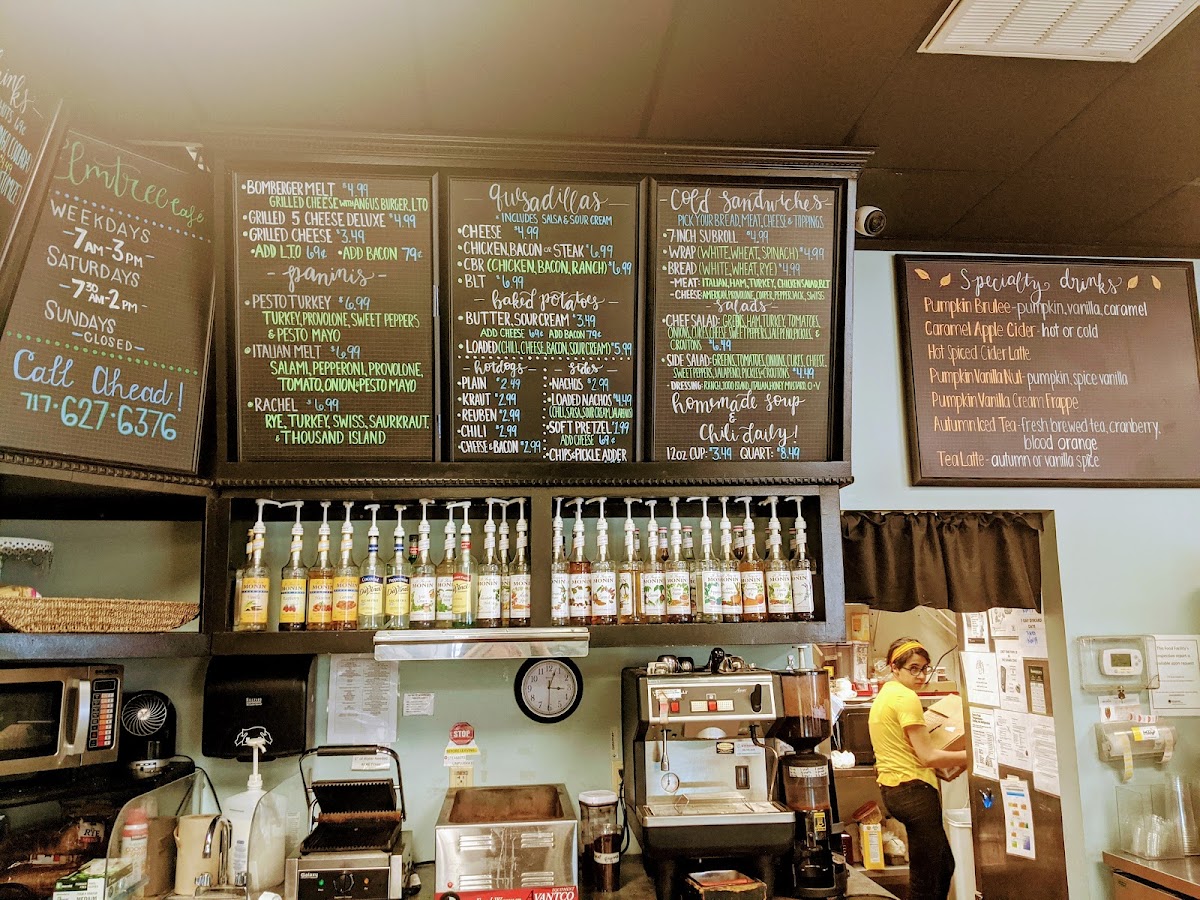 Elmtree Café
WEEKDAYS
-7AM-3PM-
SATURDAYS
-7:30AM-2PM-
SUNDAYS
-CLOSED-
Call Ahead!
717·627·6376
•BOMBERGER MELT $4.99
GRILLED CHEESE WITH ANGUS BURGER, LTO
•GRILLED 5 CHEESE DELUXE $4.99
•GRILLED CHEESE $3.49
•ADD L.T.O 69¢ •ADD BACON 79¢
-paninis-
•PESTO TURKEY $6.99
TURKEY, PROVOLONE, SWEET PEPPERS
& PESTO MAYO
•ITALIAN MELT $6.99
SALAMI, PEPPERONI, PROVOLONE,
TOMATO, ONION & PESTO MAYO
•RACHEL $6.99
RYE, TURKEY, SWISS, SAURKRAUT,
& THOUSAND ISLAND
quisadillas
•INCLUDES SALSA & SOUR CREAM
•CHEESE $4.99
•CHICKEN, BACON OR STEAK $6.99
•CBR (CHICKEN, BACON, RANCH) $6.99
•BLT $6.99
-baked potatoes-
•BUTTER, SOUR CREAM $3.49
ADD CHEESE 69¢ ADD BACON 79¢
•LOADED (CHILI, CHEESE, BACON, SOUR CREAM) $5.99
-hotdogs-
•PLAIN $2.49
•KRAUT $2.99
•REUBEN $2.99
•CHILI $2.99
•CHEESE & BACON $2.99
-sides-
•NACHOS $2.99
•LOADED NACHOS $4.49
(CHILI, SALSA, SOUR CREAM, JALAPENOS)
•SOFT PRETZEL $2.99
ADD CHEESE 69¢
•CHIPS & PICKLE ADDER
-Cold Sandwiches-
PICK YOUR BREAD, MEAT, CHEESE & TOPPINGS
•7 INCH SUBROLL $4.99
•WRAP (WHITE, WHEAT, SPINACH) $4.99
•BREAD (WHITE, WHEAT, RYE) $4.99
-MEAT: ITALIAN, HAM, TURKEY, CHICKEN SALAD, BLT
-CHEESE: AMERICAN, PROVOLONE, COOPER, PEPPERJACK, SWISS
-salads-
•CHEF SALAD: GREENS, HAM, TURKEY, TOMATOES,
ONION, CUKES, CHEESE, SWEET PEPPERS, JALAPENO, PICKLES, &
CROUTONS $6.49
•SIDE SALAD: GREENS, TOMATOES, ONIONS, CUKES, CHEESE,
SWEET PEPPERS, JALAPENO, PICKLES & CROUTONS $4.49
•DRESSING: RANCH, 1000 ISLAND, ITALIAN, HONEY MUSTARD, O+V
homemade soup
&
Chili daily!
12oz CUP: $3.49 QUART: $8.49
Specialty drinks
Pumpkin Brulee-pumpkin, vanilla, caramel
Caramel Apple Cider-hot or cold
Hot Spiced Cider Latte
Pumpkin Vanilla Nut-pumpkin, spice vanilla
Pumpkin Vanilla Cream Frappe
Autumn Iced Tea-Fresh brewed tea, cranberry,
blood orange
Tea Latte-autumn or vanilla spice
MONIN
STOP
Galaxy
VANTCO